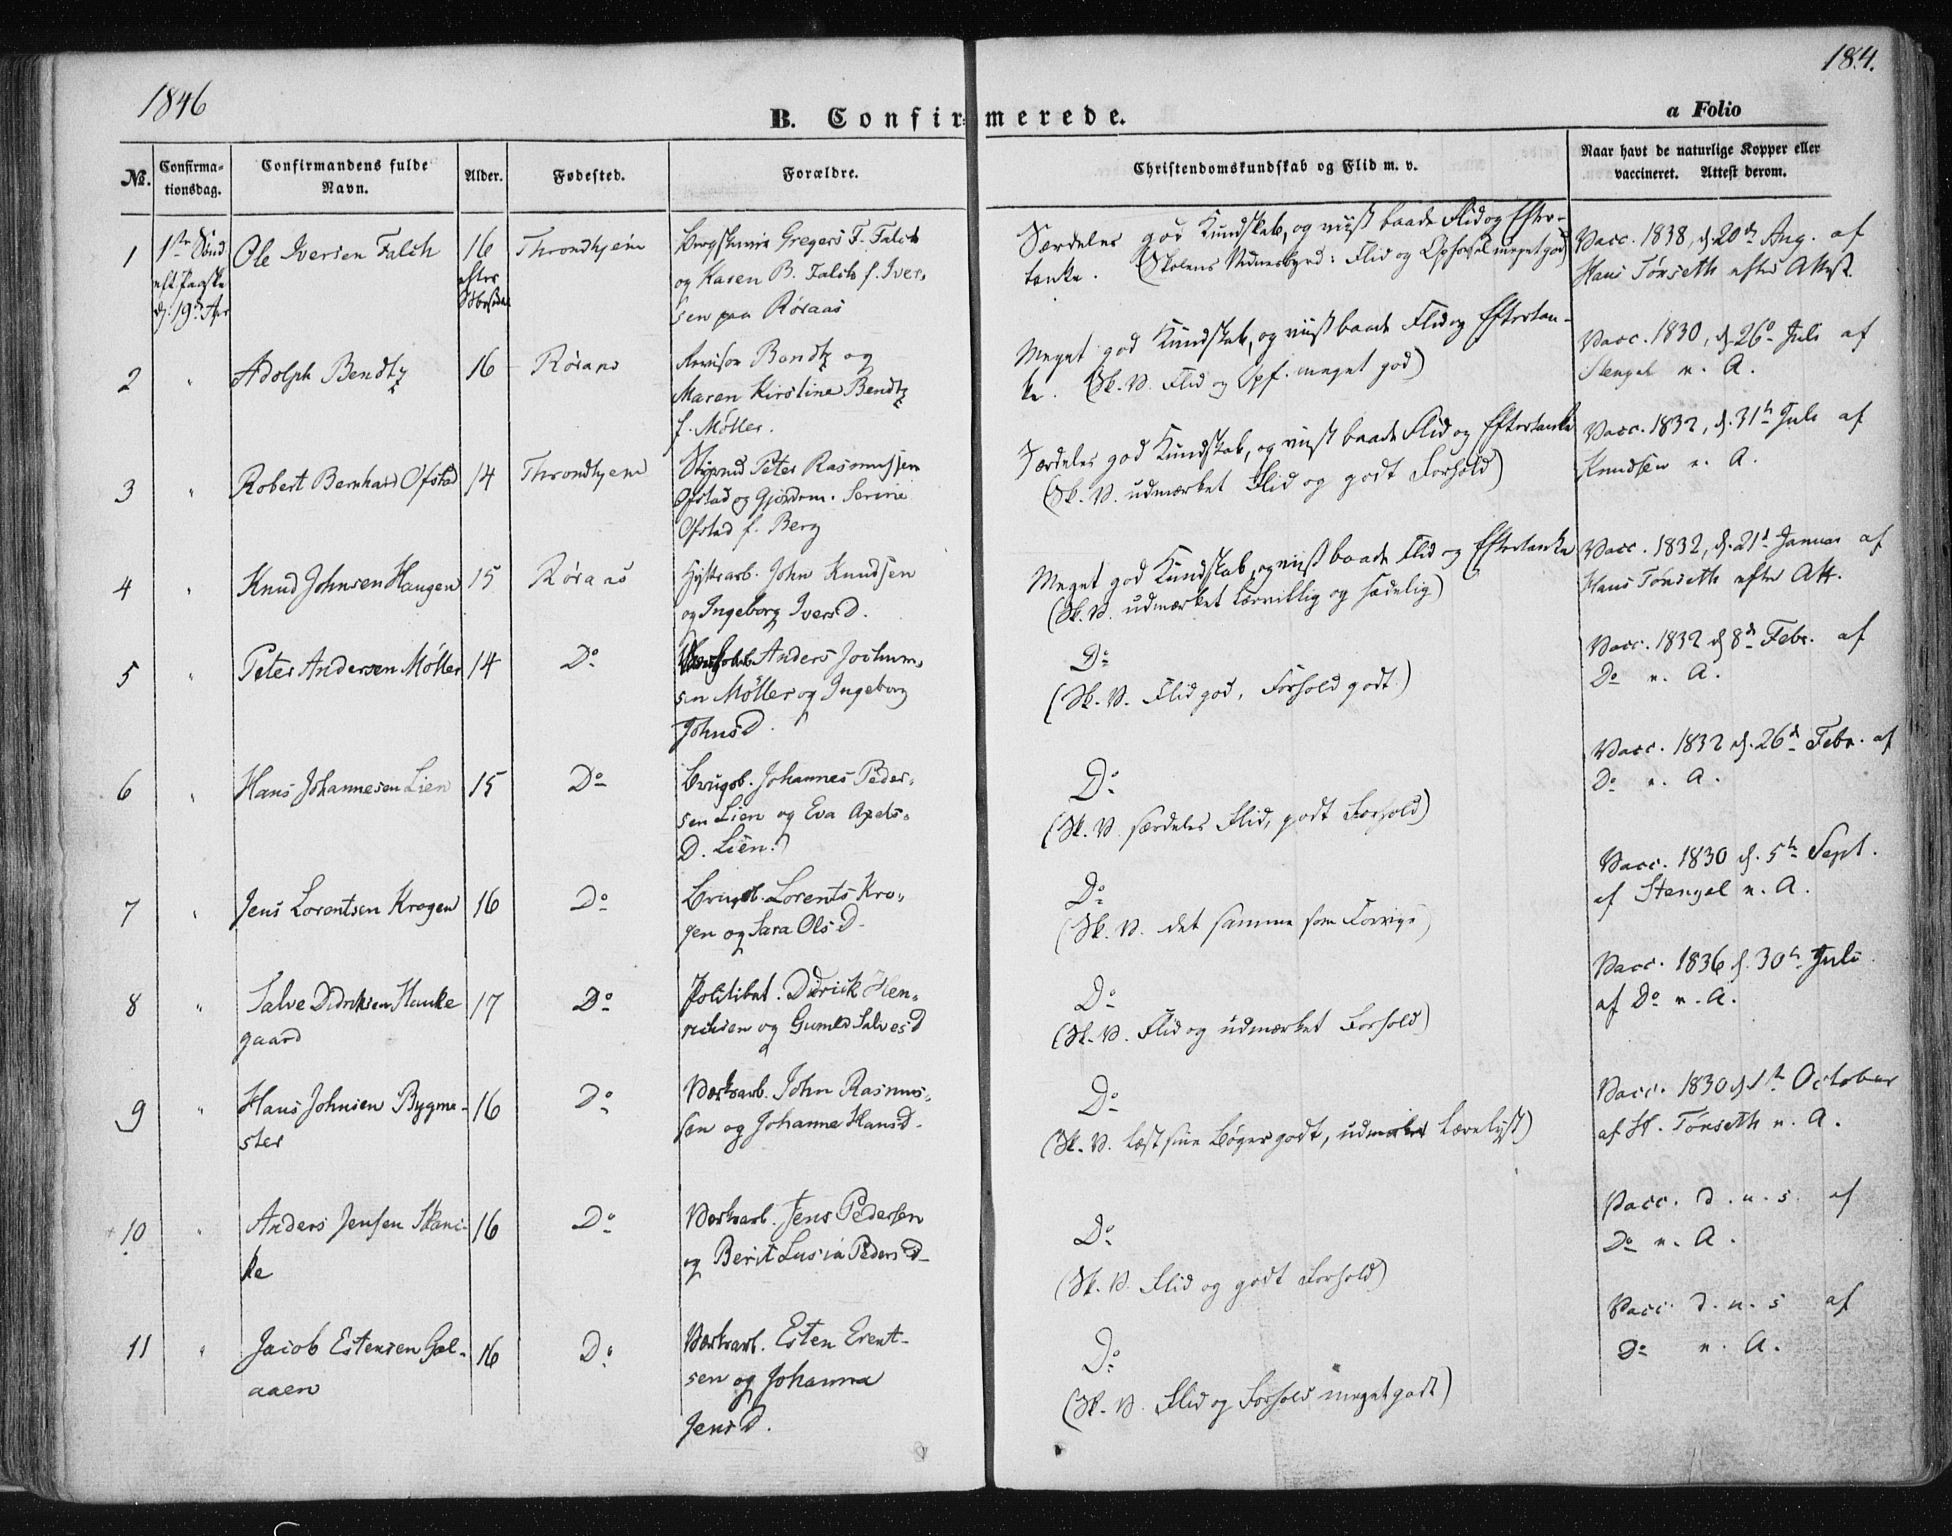 1846
184.
B. Confirmerede.
a Folio
№.
Confirma-
tionsdag.
Confirmandens fulde
Navn.
Alder.
Fødested.
Forældre.
Christendomskundskab og Flid m. v.
Naar havt de naturlige Kopper eller
vaccineret. Attest derom.
1
1ste Sønd.
eft. Paaske
d. 19de Apr
Ole Iversen Falch
16
efter
Throndhjem
Gregers F. Falch
og Karen B. Falch f. Iver-
sen paa Røraas
Særdeles god Kundskab, og viist baade Flid og Efter-
tanke. (Skolens Vidnesbyrd: Flid og Opførsel meget god)
Vacc. 1838, d. 20de Aug. af
Hans Tønseth efter Attest
2
"
Adolph Bendtz
16
Røraas
Revisor Bendtz og
Maren Kirstine Bendtz
f. Møller.
Meget god Kundskab, og viist baade Flid og Eftertan-
ke. (Sk. V. Flid og Opf. meget god)
Vacc. 1830, d. 26de Juli af
Stengel e. A.
3
"
Robert Bernhard Ofstad
14
Throndhjem
Peter Rasmussen
Ofstad og Gjordm. Serine
Ofstad f. Berg
Særdeles god Kundskab, og viist baade Flid og Eftertanke
(Sk. V. udmærket Flid og godt Forhold)
Vacc. 1832, d. 31te Juli af
Knudsen e. A.
4
"
Knud Johnsen Haugen
15
Røraas
Hyttearb. John Knudsen
og Ingeborg IversD.
Meget god Kundskab, og viist baade Flid og Eftertanke
(Sk. V. udmærket lærvillig og sædelig)
Vacc. 1832, d. 21de Januar af
Hans Tønseth efter Att.
5
"
Peter Andersen Møller
14
Do
Anders Jochum-
sen Møller og Ingeborg
JohnsD.
Do
(Sk. V. Flid god, Forhold godt.)
Vacc. 1832 d. 8de Febr. af
Do e. A.
6
"
Hans Johannesen Lien
15
Do
Brugsb. Johannes Peder-
sen Lien og Eva Axels-
D. Lien.
Do
(Sk. V. særdeles Flid, godt Forhold)
Vacc. 1832 d. 26de Febr. af
Do e. A.
7
"
Jens Lorentsen Krogen
16
Do
Brugsb. Lorents Kro-
gen og Sara OlsD.
Do
(Sk. V. det samme som Forrige)
Vacc. 1830 d. 5te Sept.
af Stengel e. A.
8
"
Salve Didriksen Hauke
gaard
17
Do
Politibet. Didrick Hen-
richsen og Gunild SalvesD
Do
(Sk. V. Flid og udmærket Forhold)
Vacc. 1836 d. 30te Juli
af Do e. A.
9
"
Hans Johnsen Bygme-
ster
16
Do
Værksarb. John Rasmus-
sen og Johanne HansD.
Do
(Sk. V. læst sine Bøger godt, udmærket Lærelyst)
Vacc. 1830 d. 1te October
af H. Tønseth e. A.
10
"
Anders Jensen Skanc-
ke
16
Do
Værksarb. Jens Pedersen
og Berit Lusia PedersD.
Do
(Sk. V. Flid og godt Forhold)
Vacc. d. u. s. af
Do e. A.
11
"
Jacob Estensen Gal-
aaen
16
Do
Værksarb. Esten Erent-
sen og Johanna
JensD.
Do
(Sk. V. Flid og Forhold meget godt)
Vacc. d. u. s af
Do e. A.